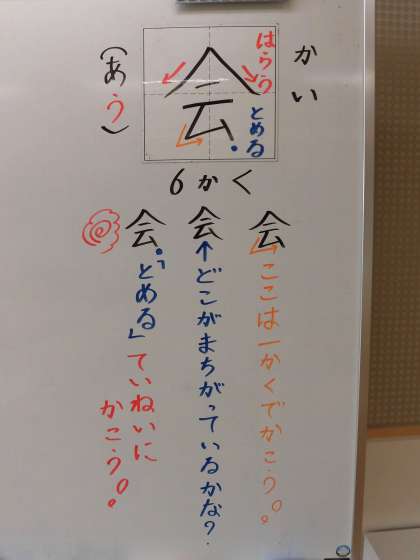 かい
会
はらう
とめる
(あう)
6かく
会
ここは一かくでかこう。
会
↑どこがまちがっているかな?
会
「とめる」ていねいに
かこう。